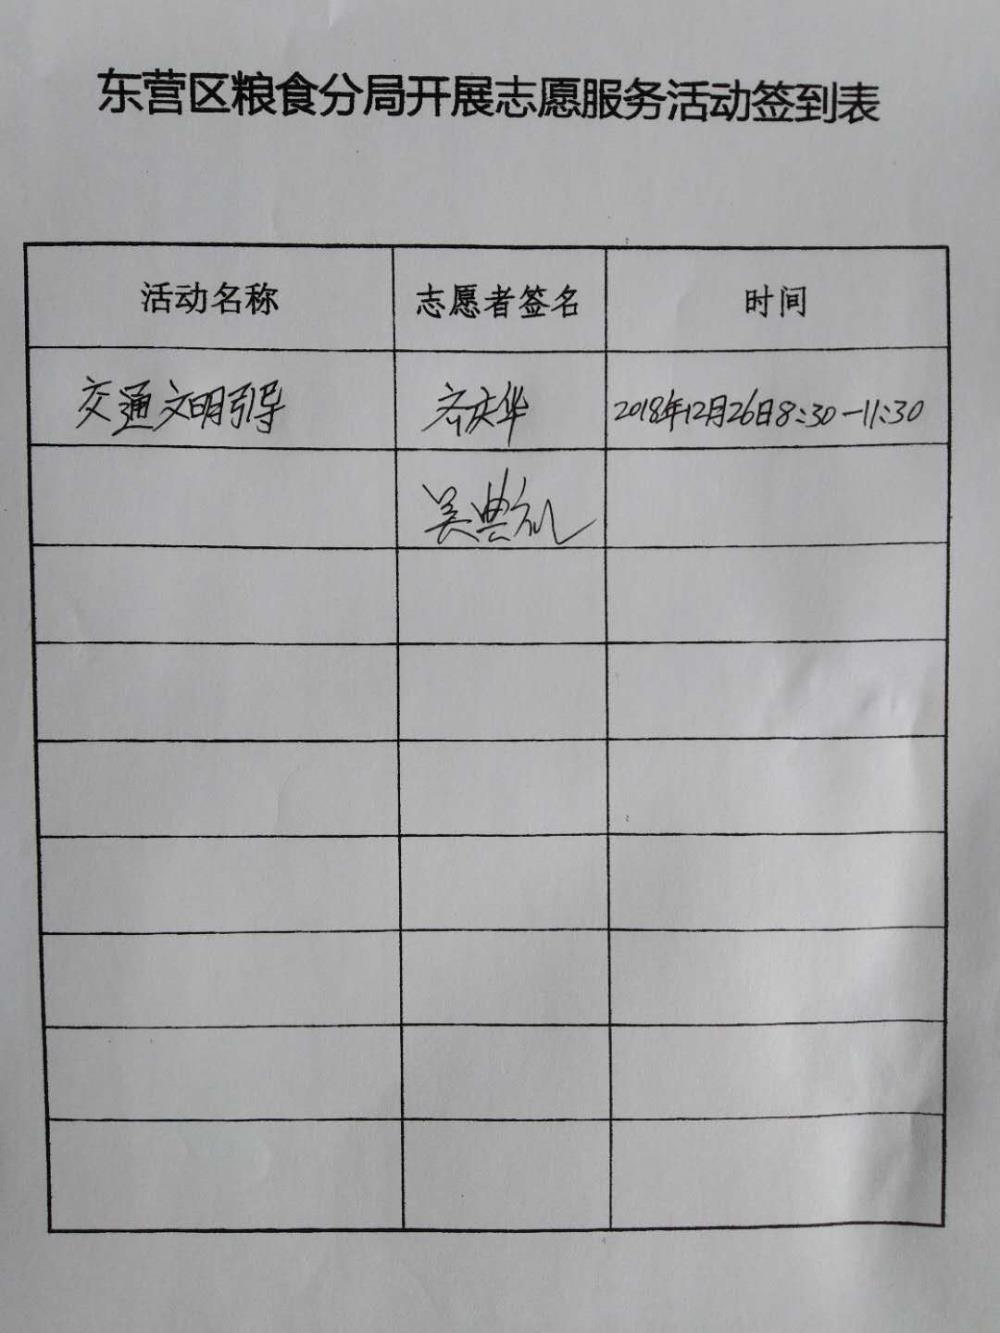 东营区粮食分局开展志愿服务活动签到表
活动名称 志愿者签名 时间
交通文明引导 齐庆华 2018年12月26日8:30-11:30
吴典